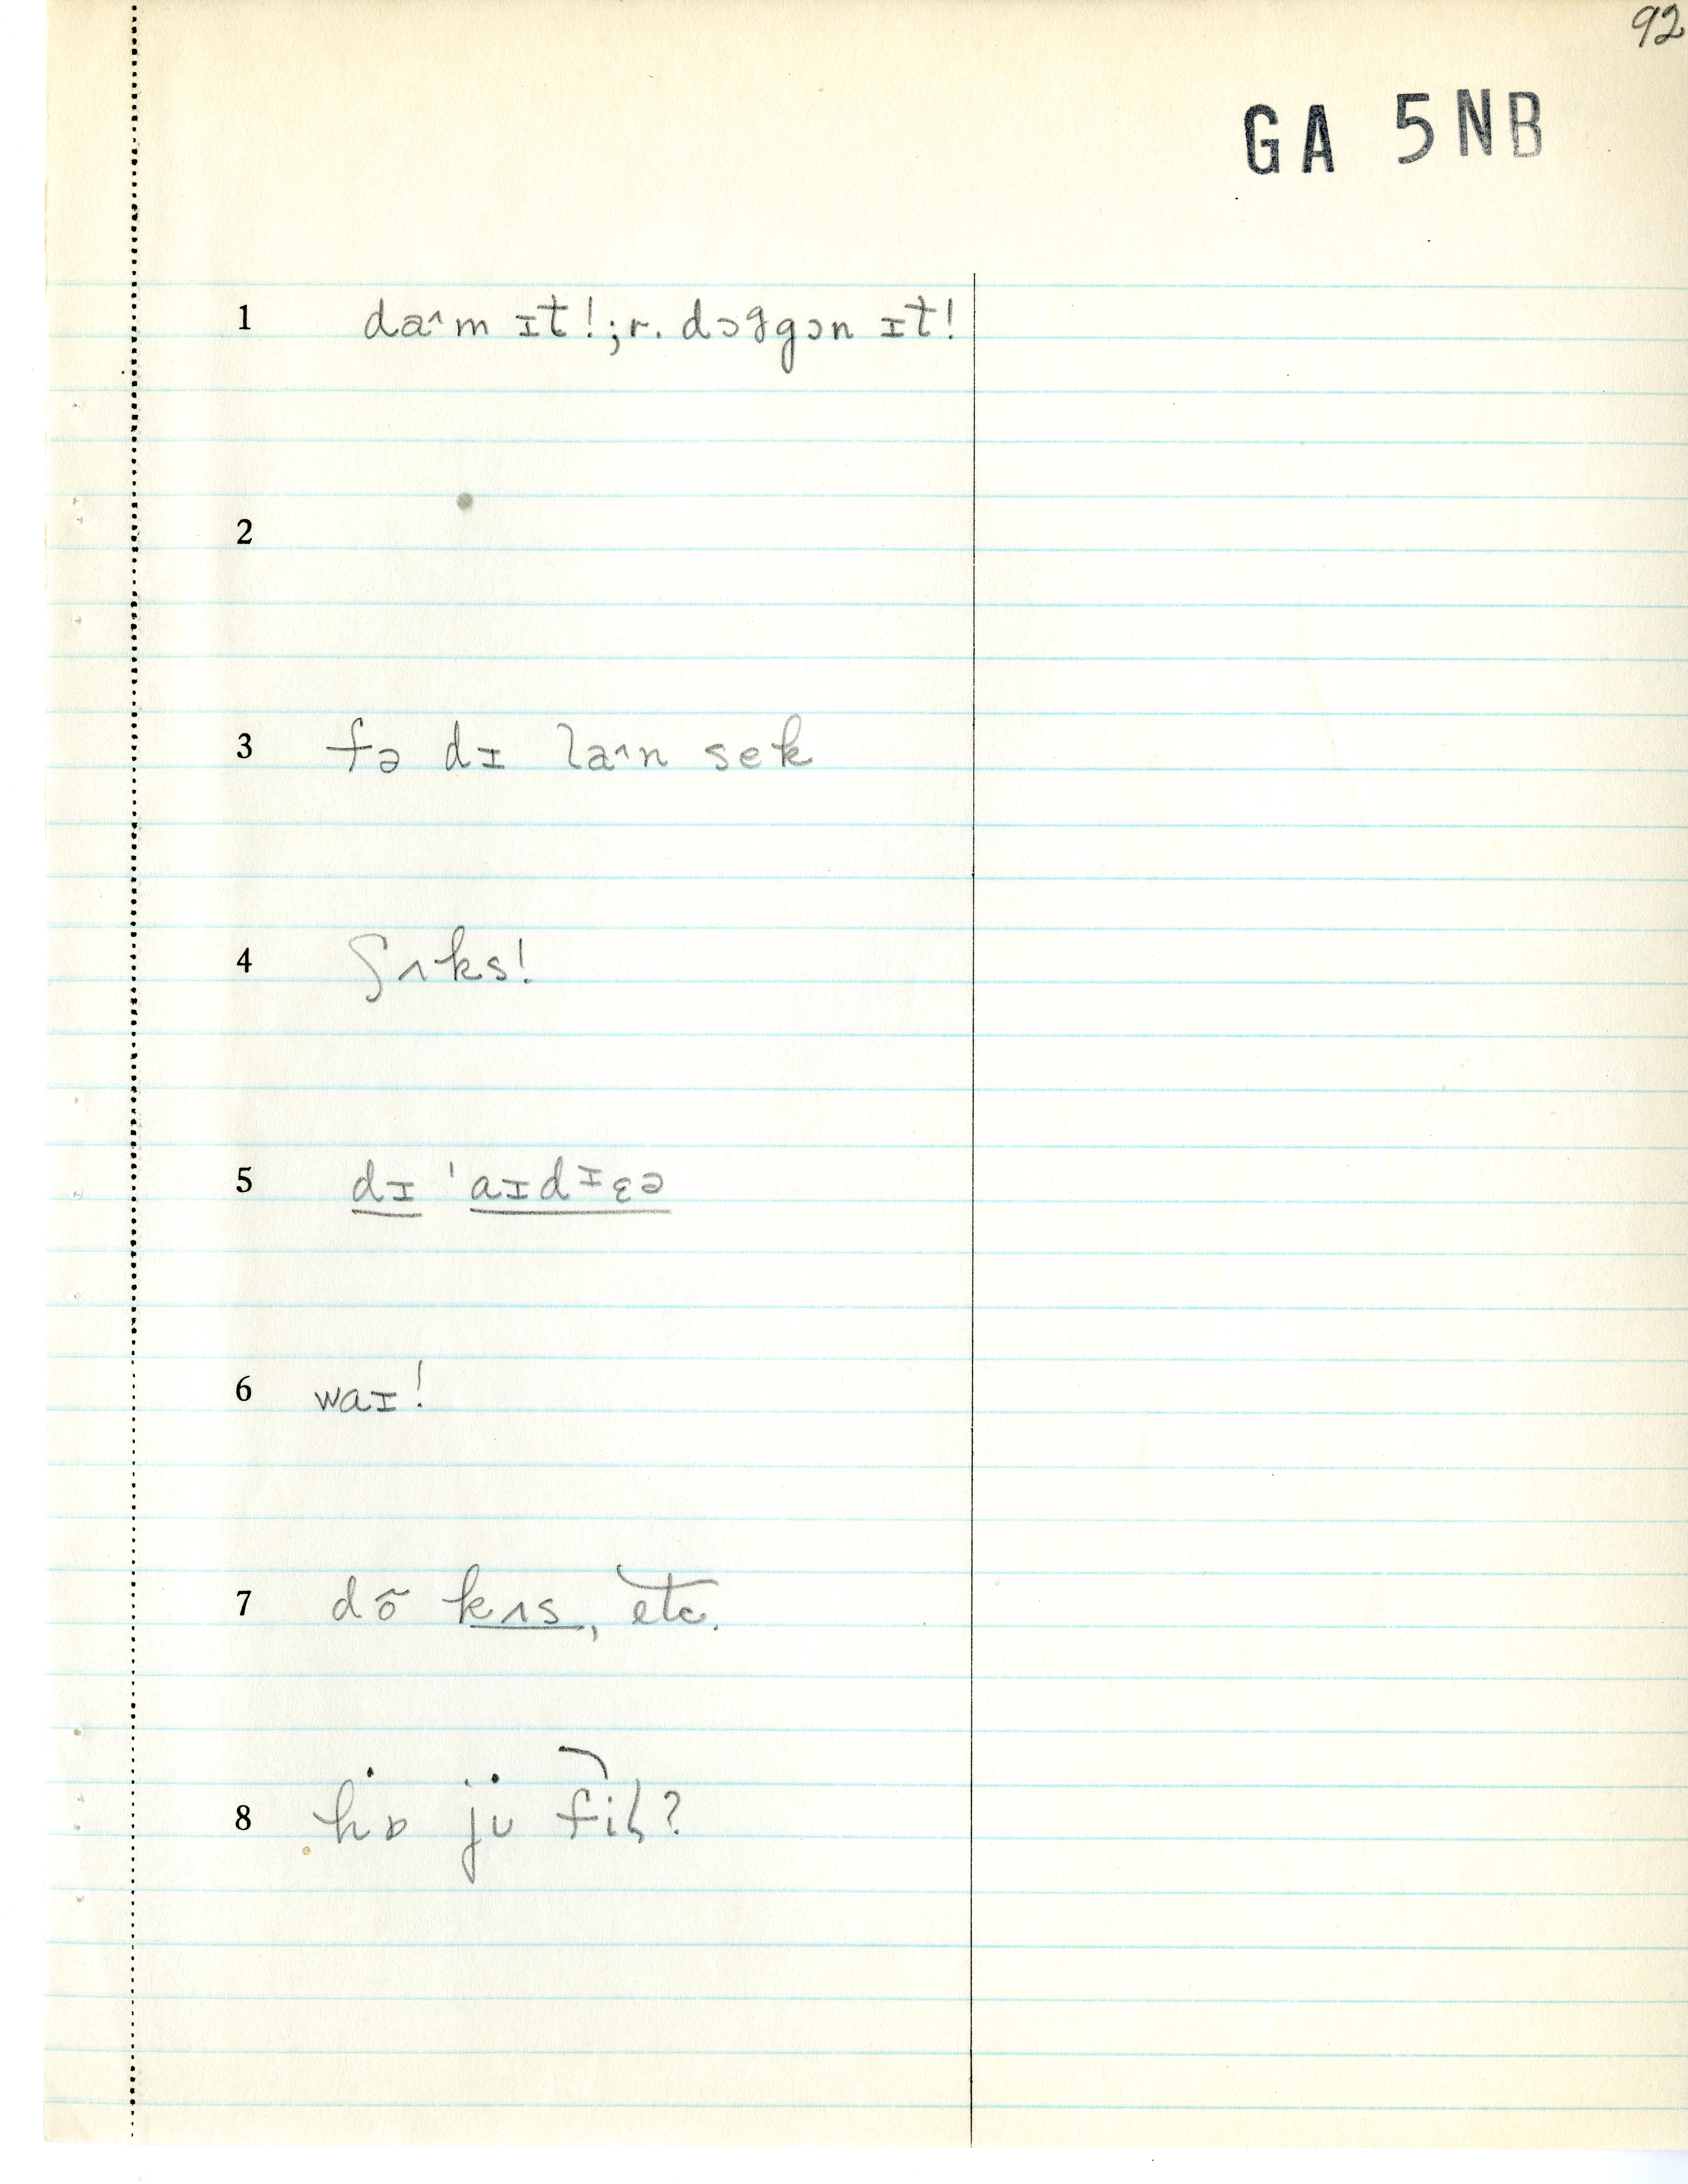 92
GA 5NB
1 da^m ɪt!; r. dɔggɔn ɪt!
2
3 fə dɪ la^n sek
4 ʃʌks!
5 dɪ ˈaɪdᶦɛə
6 waɪ!
7 dõ kʌs, etc.
8 hɒ ju fil?